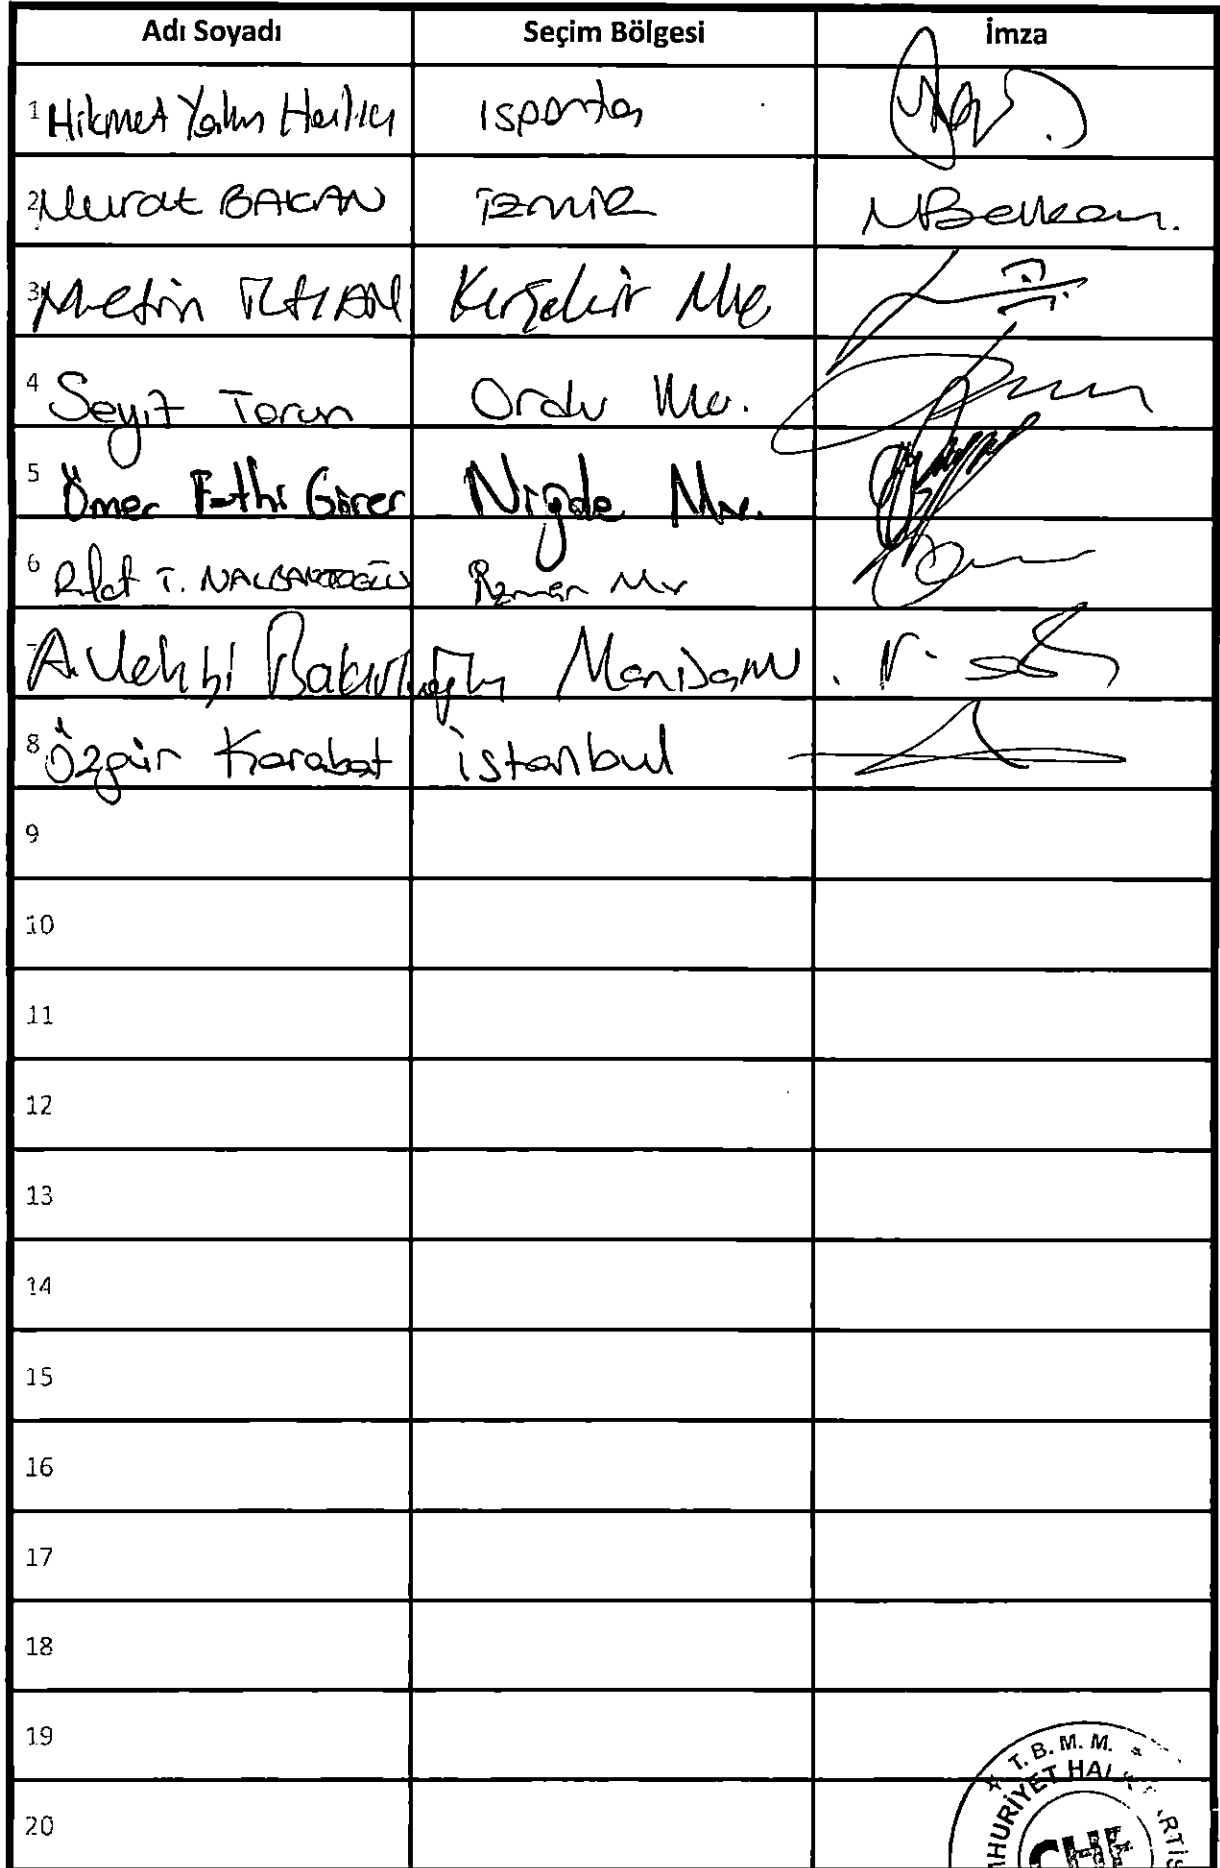 Adı Soyadı Seçim Bölgesi İmza
1 Hikmet Yalım Halıcı Isparta
2 Murat BAKAN İZMİR MBakan.
3 Metin İLHAN Kırşehir Mv.
4 Seyit Torun Ordu Mv.
5 Ömer Fethi Gürer Niğde Mv.
6 Rafet T. NALBANTOĞLU Mv
7 A. Vehbi Bakırlıoğlu Manisa MV.
8 Özgür Karabat İstanbul
9
10
11
12
13
14
15
16
17
18
19
20
T. B. M. M.
CHP